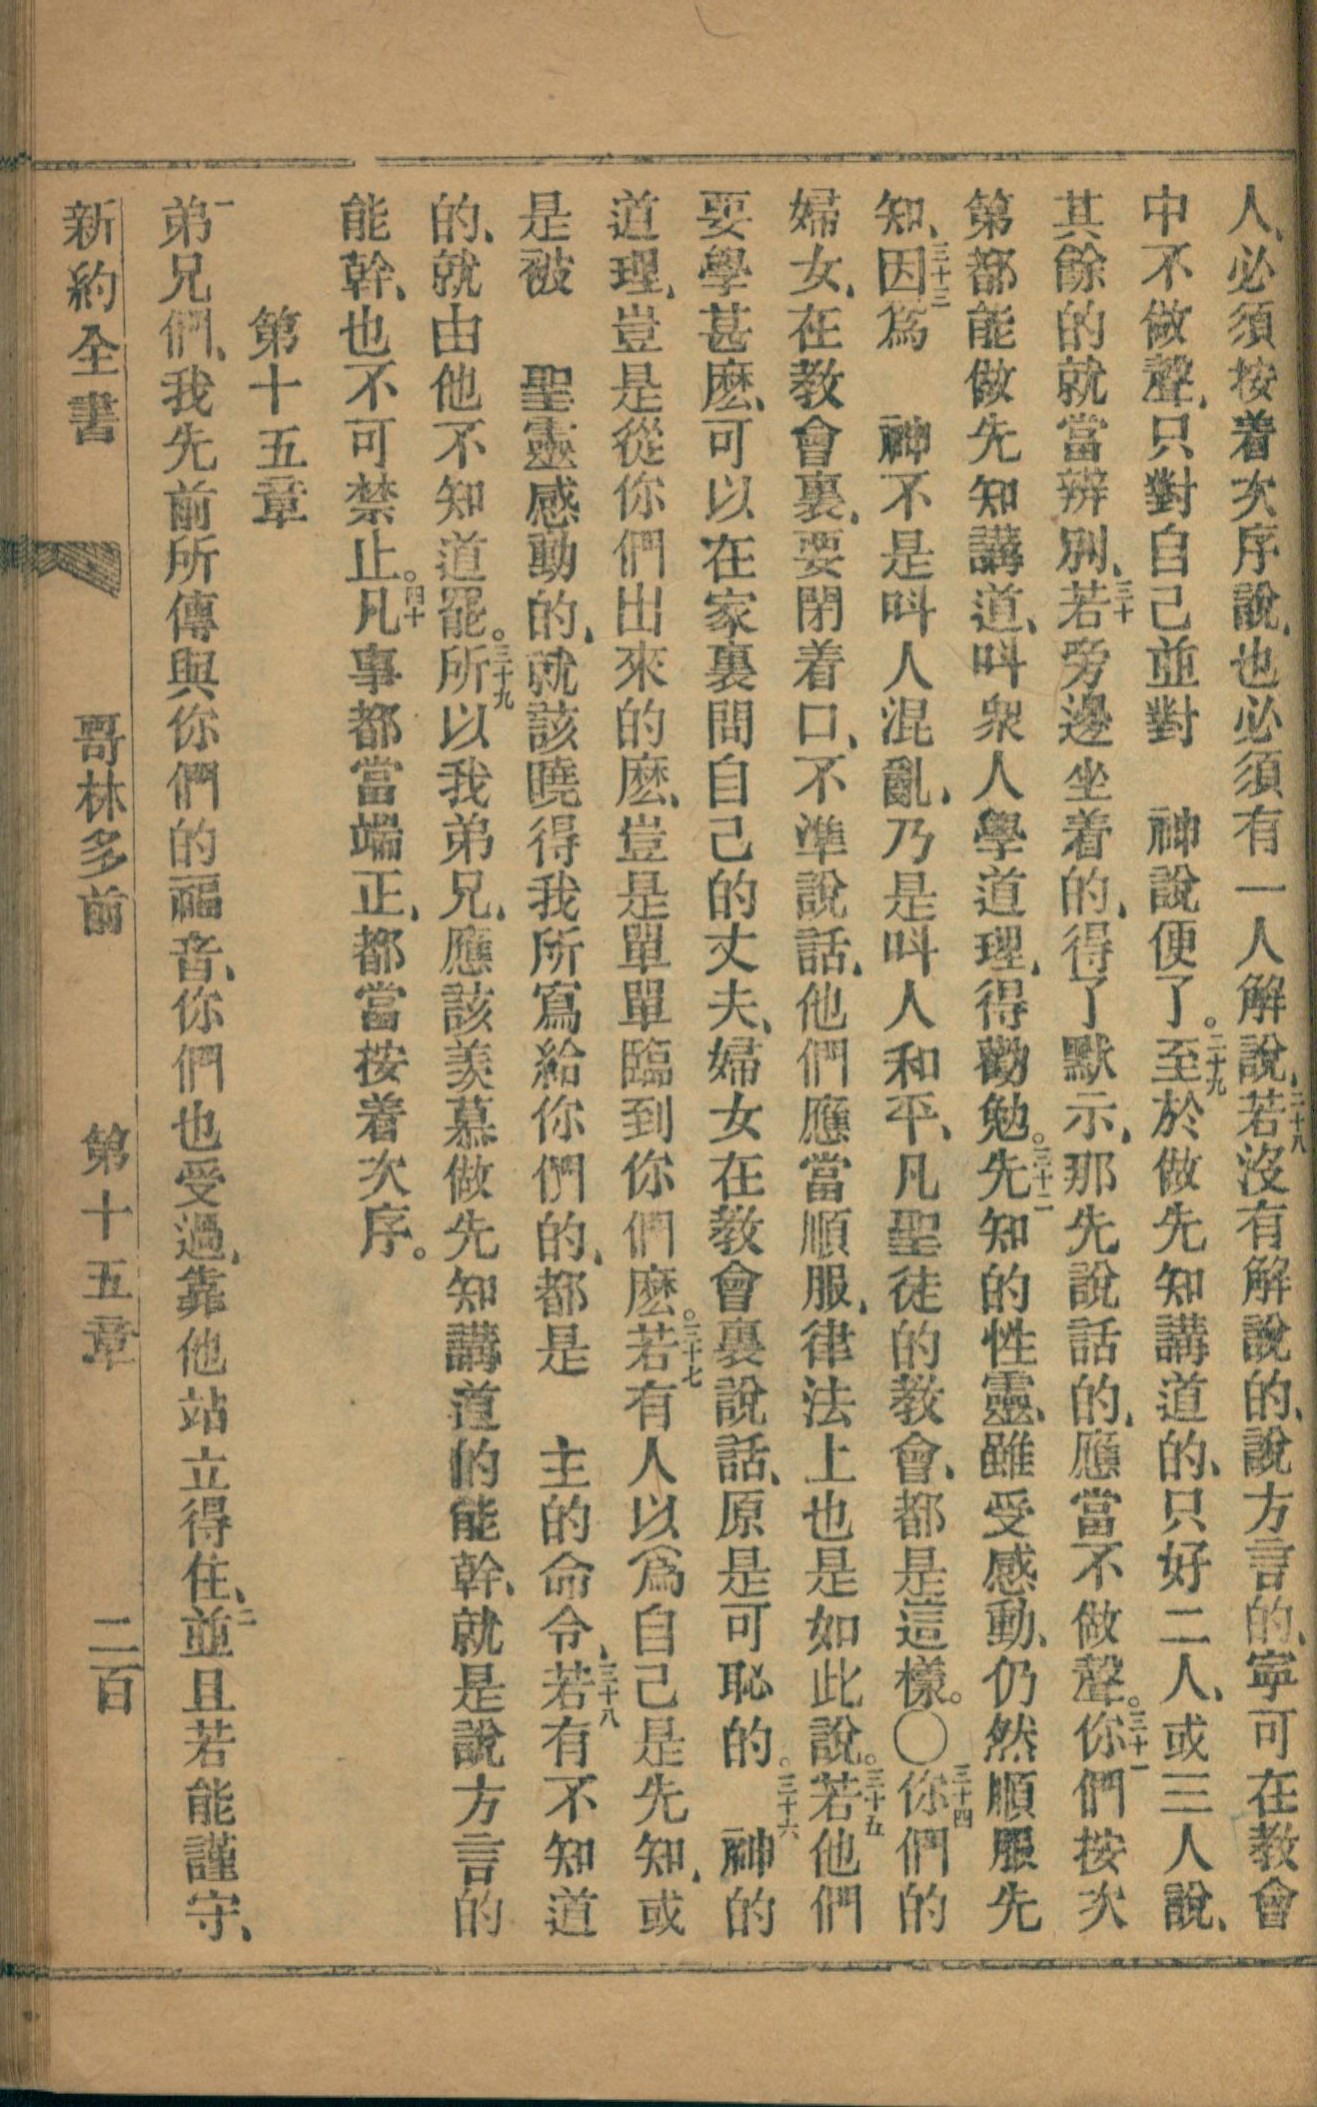 人、必須按着次序說、也必須有一人解說、二十八若沒有解說的、說方言的、寧可在教會
中不做聲、只對自己並對　神說便了。二十九至於做先知講道的、只好二人、或三人說、
其餘的就當辨別、三十若旁邊坐着的、得了默示、那先說話的、應當不做聲。三十一你們按次
第都能做先知講道、呌衆人學道理、得勸勉。三十二先知的性靈、雖受感動、仍然順服先
知、三十三因爲　神不是呌人混亂、乃是呌人和平、凡聖徒的教會、都是這樣。〇三十四你們的
婦女、在教會裏、要閉着口、不準說話、他們應當順服、律法上也是如此說。三十五若他們
要學甚麽、可以在家裏問自己的丈夫、婦女在教會裏說話、原是可恥的。三十六　神的
道理、豈是從你們出來的麽、豈是單單臨到你們麽。三十七若有人以爲自己是先知、或
是被　聖靈感動的、就該曉得我所寫給你們的、都是　主的命令、三十八若有不知道
的、就由他不知道罷。三十九所以我弟兄、應該羨慕做先知講道的能幹、就是說方言的
能幹、也不可禁止。四十凡事都當端正、都當按着次序。
第十五章
一弟兄們、我先前所傳與你們的福音、你們也受過、靠他站立得住、二並且若能謹守、
新約全書　哥林多前　第十五章　二百